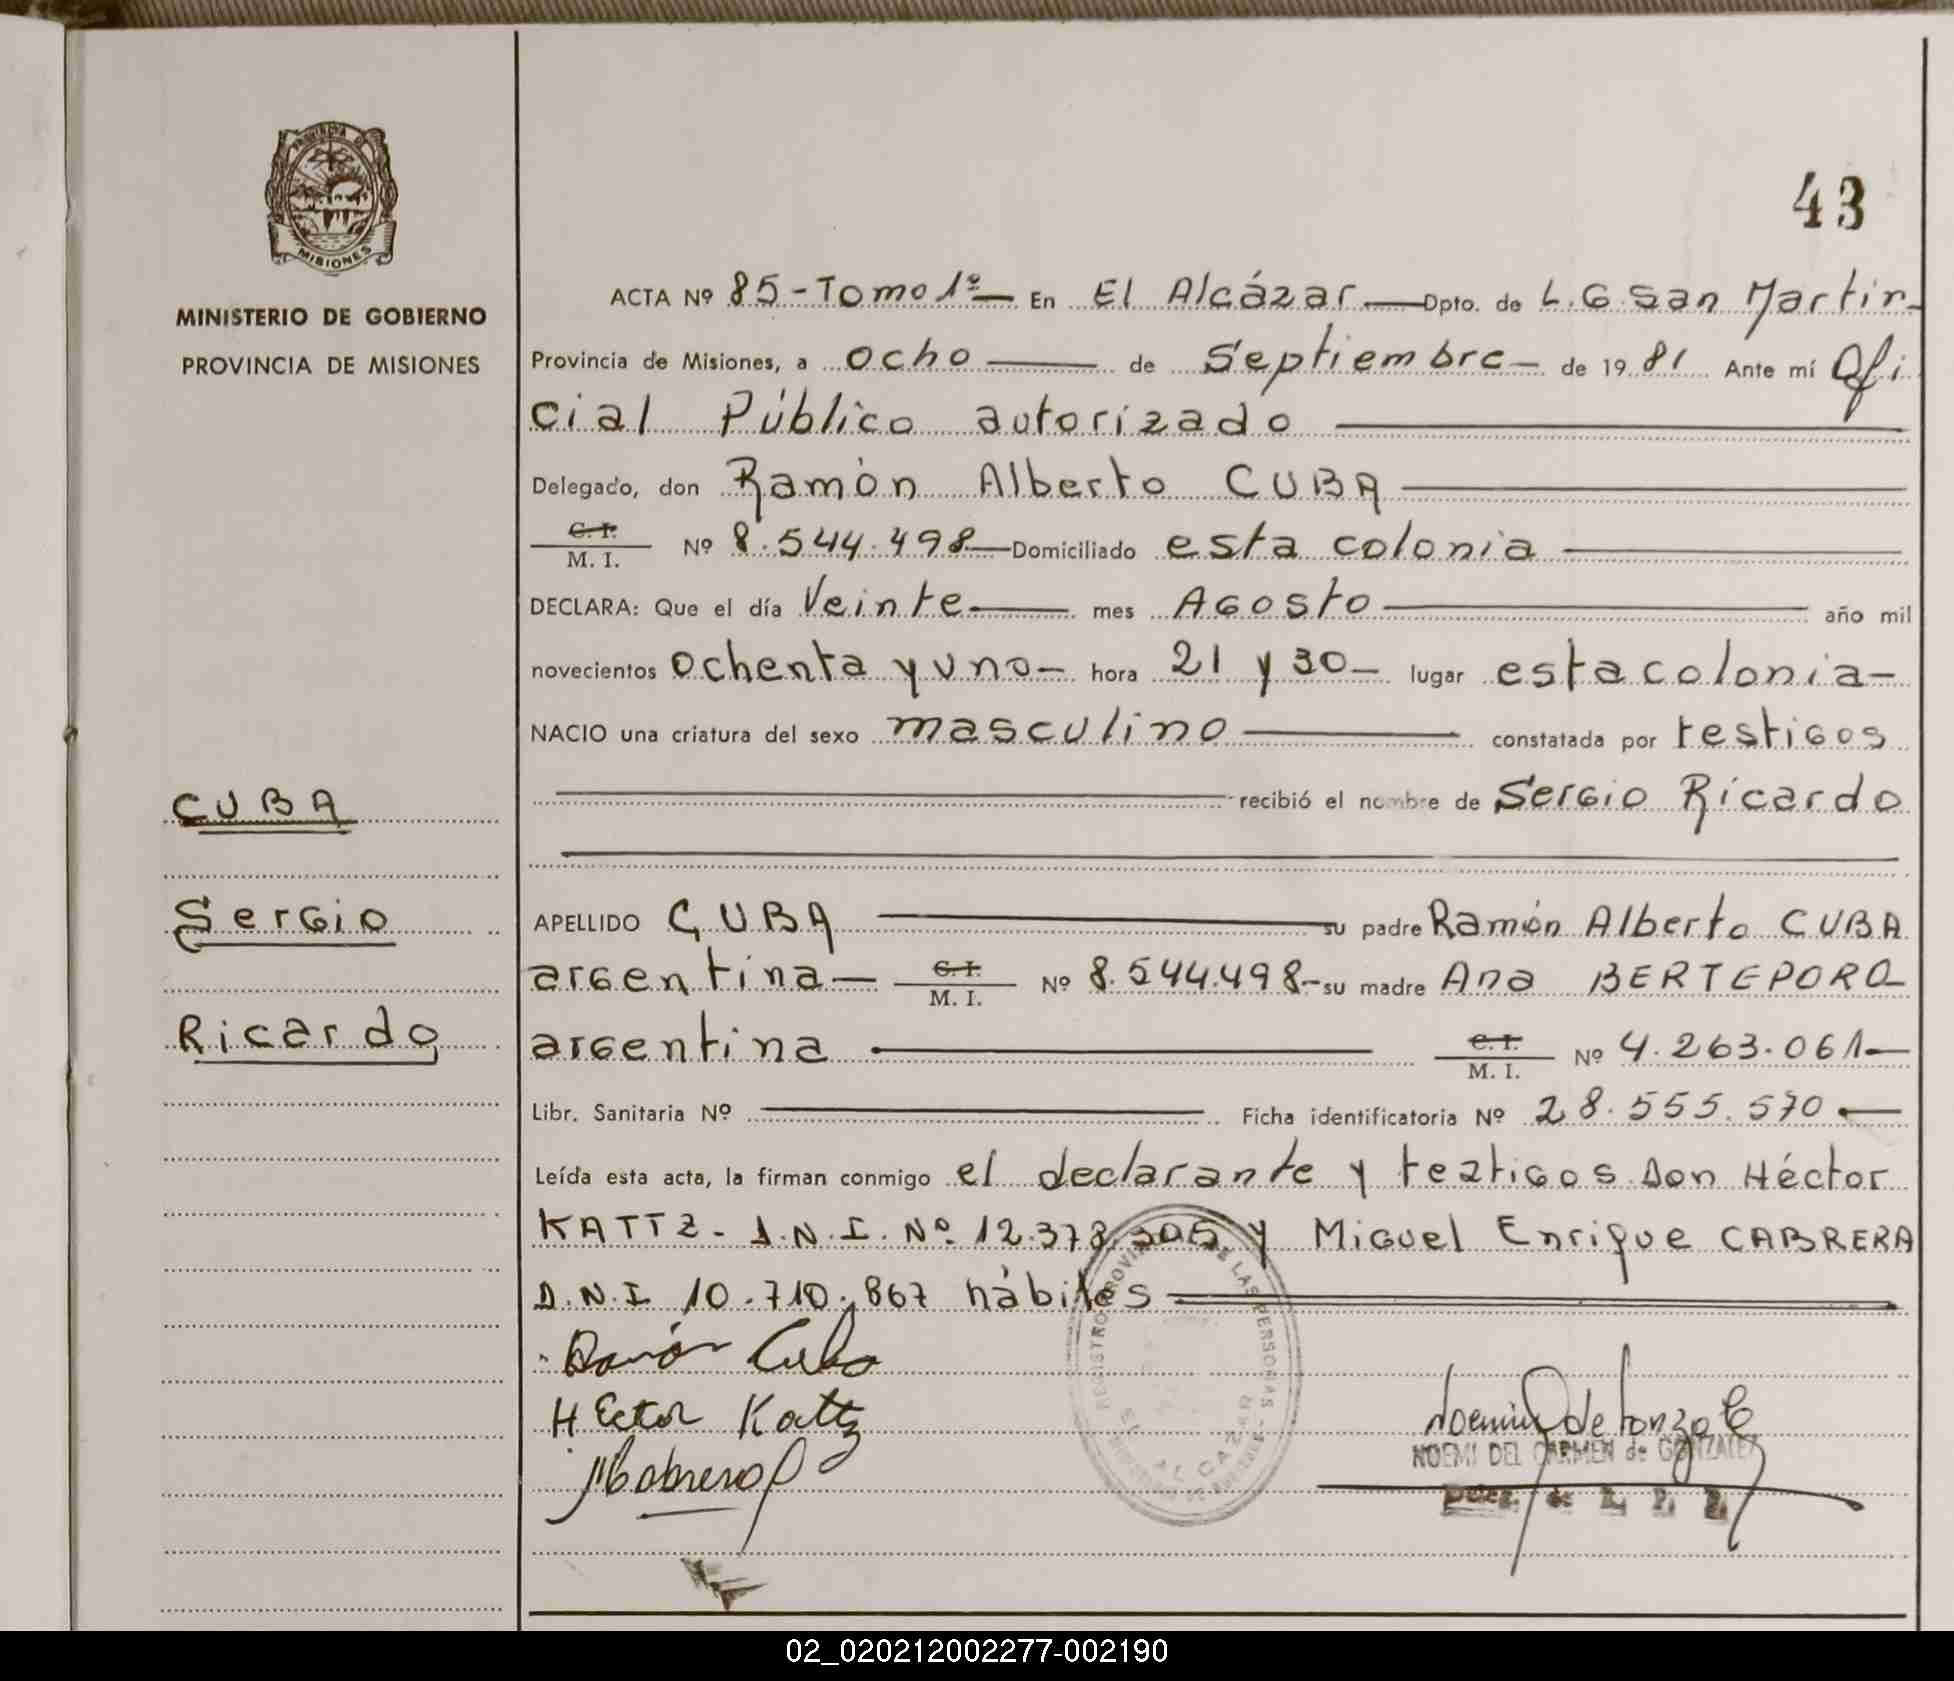 PROVINCIA D
MISIONES
MINISTERIO DE GOBIERNO
PROVINCIA DE MISIONES
CUBA
Sergio
Ricardo
43
ACTA Nº 85-Tomo 1º— En El Alcázar — Dpto. de L.G San Martín-
Provincia de Misiones, a ocho — de Septiembre — de 19 81 Ante mí Ofi
cial Público autorizado —
Delegado, don Ramón Alberto CUBA —
C. I.
M. I. Nº 8.544.498 — Domiciliado esta colonia —
DECLARA: Que el día Veinte — mes Agosto — año mil
novecientos ochenta y uno — hora 21 y 30 — lugar esta colonia —
NACIO una criatura del sexo masculino — constatada por testigos
— recibió el nombre de Sergio Ricardo
APELLIDO CUBA — su padre Ramón Alberto CUBA
argentina — C. I.
M. I. Nº 8.544.498- su madre Ana BERTEPORO
argentina — C. I.
M. I. Nº 4.263.061 —
Libr. Sanitaria Nº — Ficha identificatoria Nº 28.555.570 —
Leída esta acta, la firman conmigo el declarante y teztigos Don Héctor
KATTZ - D.N.I. Nº 12.378.305 y Miguel Enrique CABRERA
D.N.I 10.710.867 hábiles —
Ramón Cuba
HEctor Kattz
MCabrera
REGISTRO PROVINCIAL DE LAS PERSONAS
EL ALCAZAR
NOEMI DEL CARMEN de GONZALEZ
Deleg. de R. P. P.
02_020212002277-002190